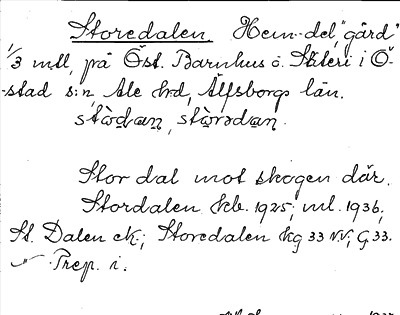 Storedalen. Hem-del, "gård"
1/3 mtl, på Öst. Barnhus o. Skteri i Ö-
-stad s:n, Ale hrd, Älfsborgs län.
stò̀dan, stòrədan.
Stor dal mot skogen där.
Stordalen hcb. 1925; ml. 1936,
St. Dalen ek.; Storedalen kg 33 NV; G 33.
Prep. i.